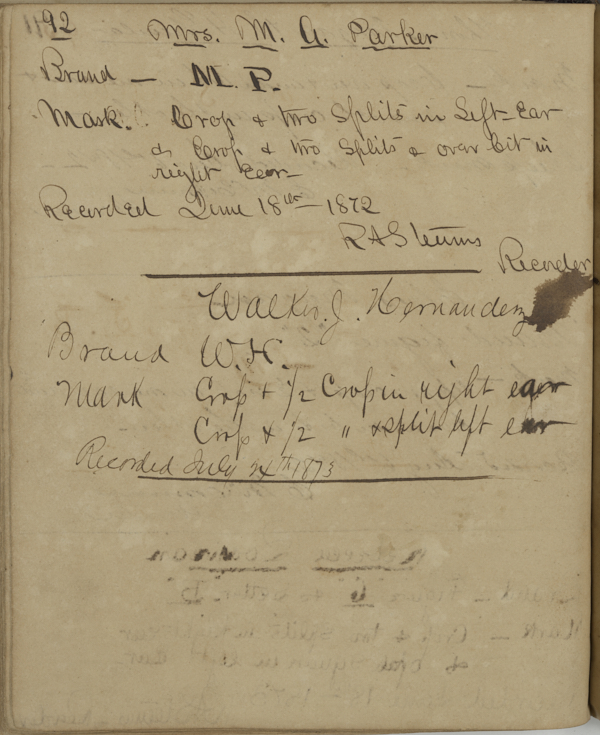 92
Mrs. M. A. Parker
Brand — M. P.
Mark. Crop & two Splits in Left Ear
& Crop & two Splits & over bit in
right Ear
Recorded June 18th 1872
R A Stearns
Recorder
Walker J. Hernandez
Brand W. H.
Mark Crop + 1/2 Crop in right ear
Crop & 1/2 " & split left ear
Recorded July 24th 1873